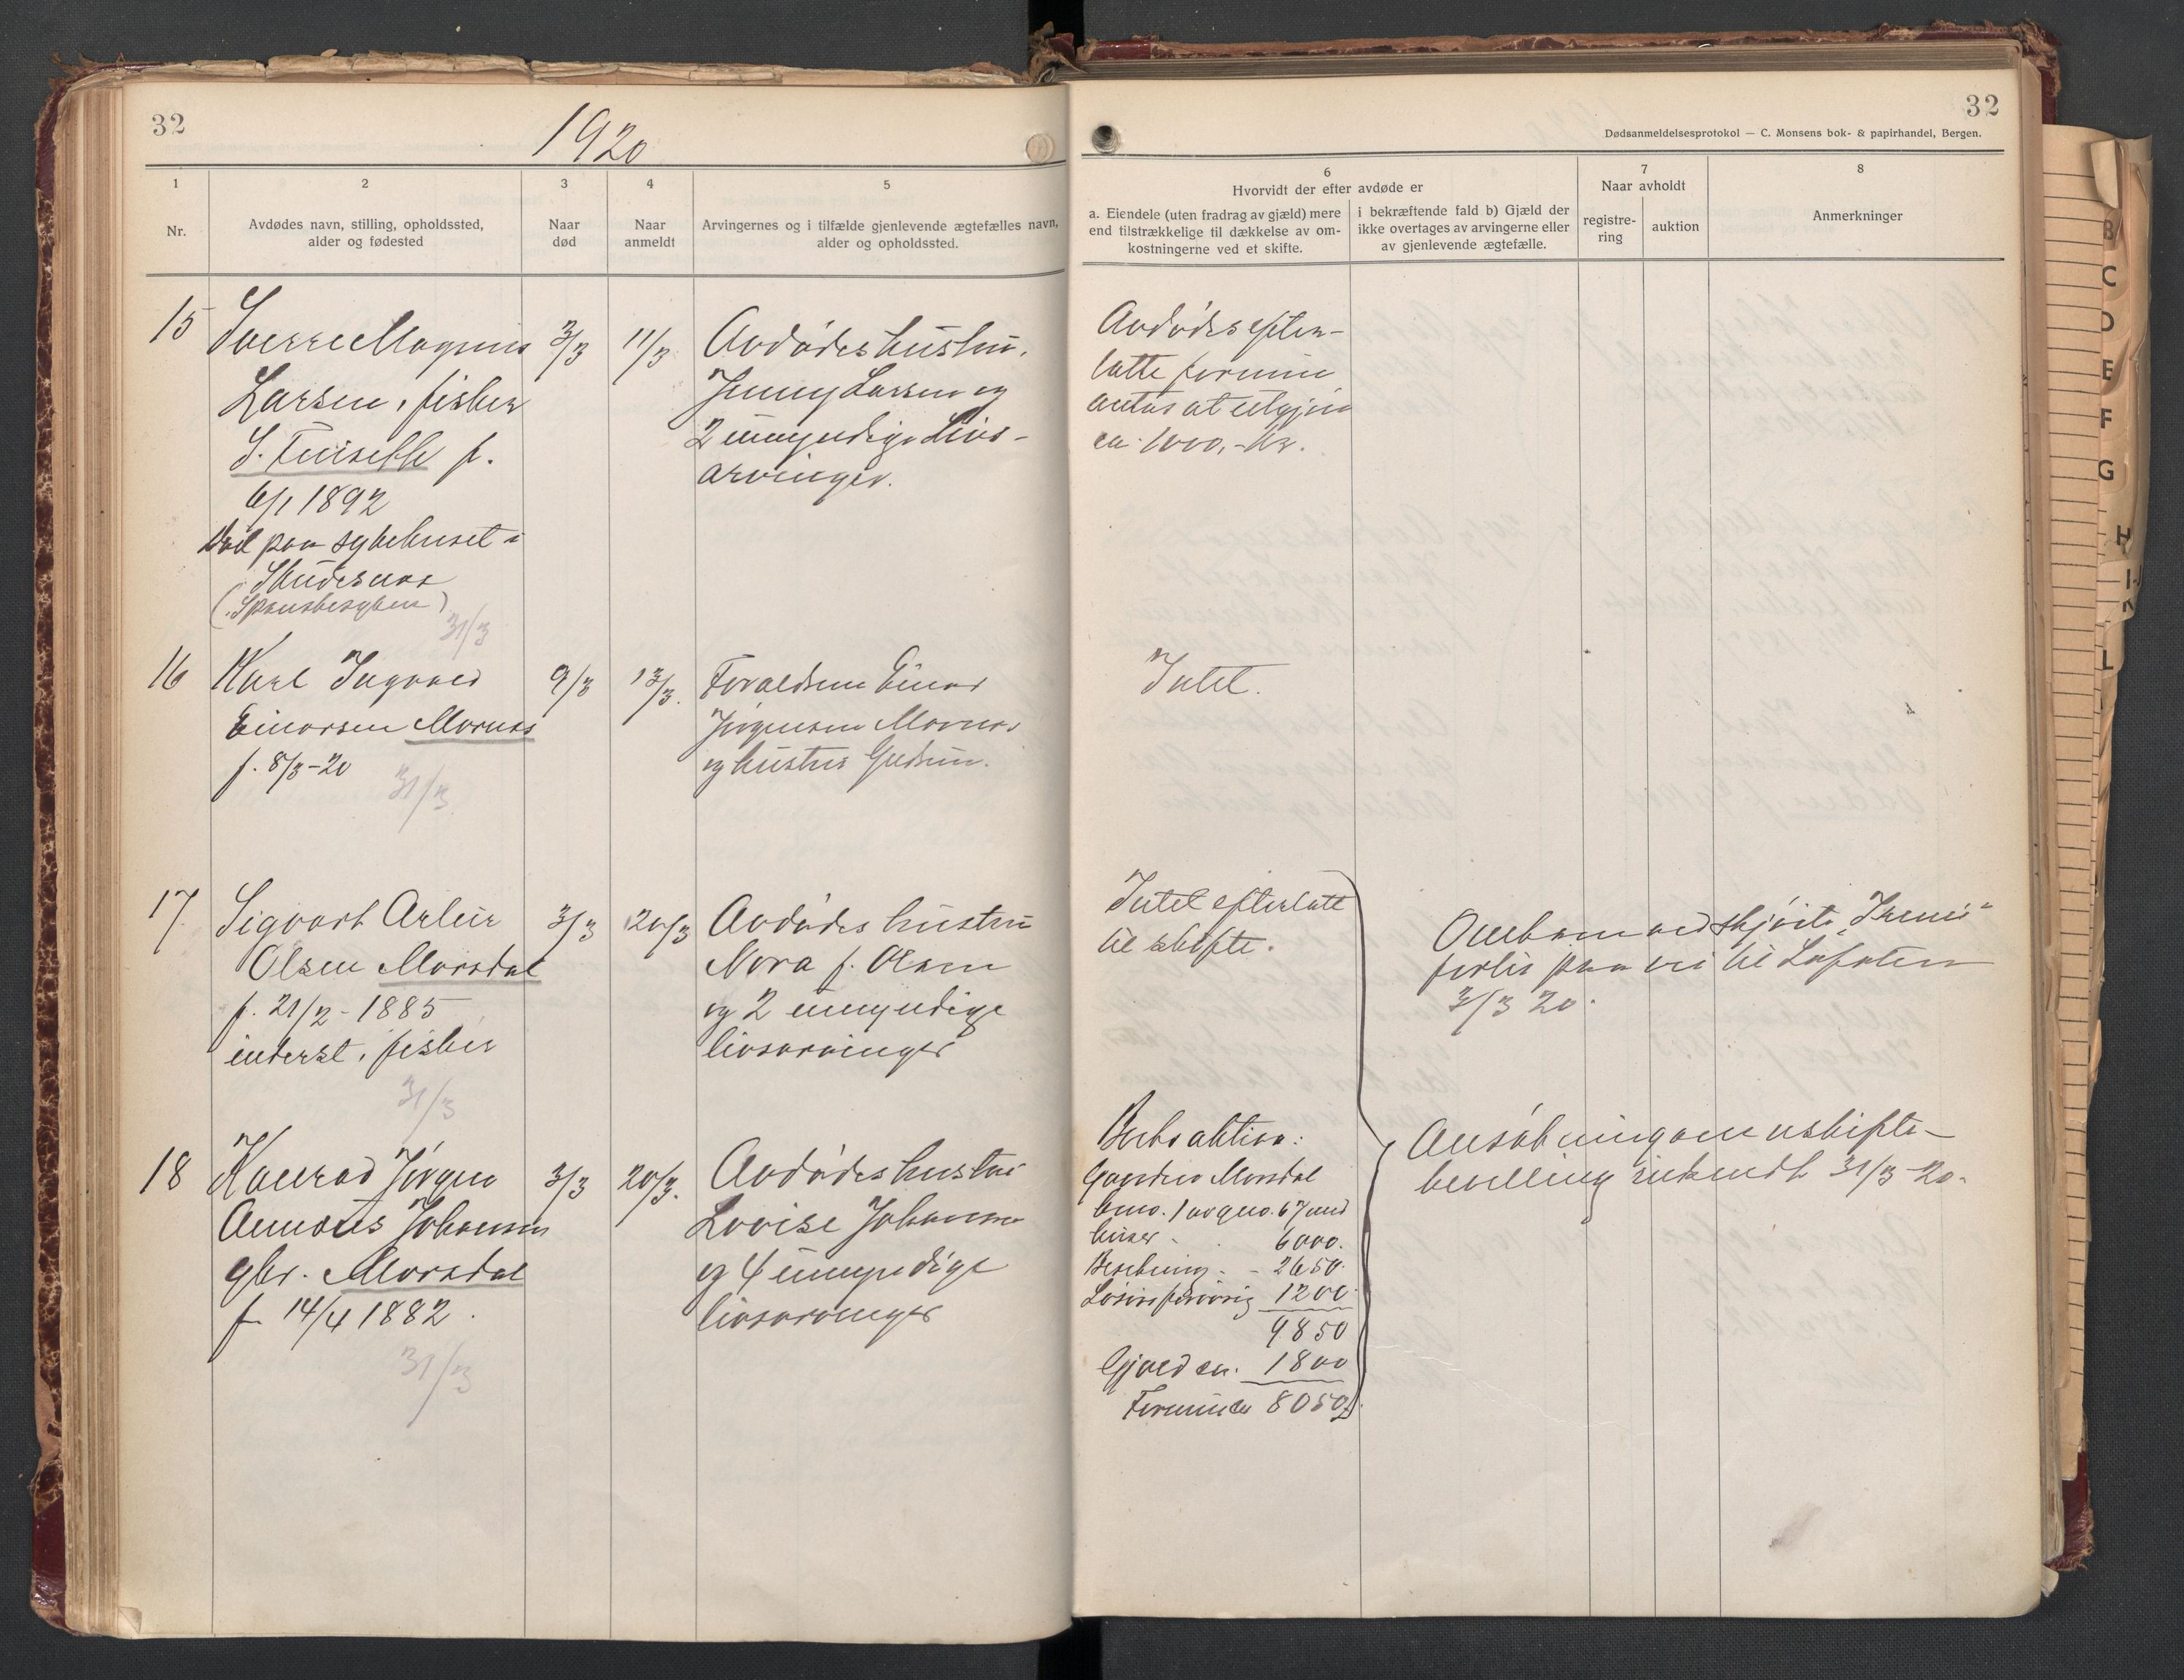 32
1920
1
2
3
4
5
Nr.
Avdødes navn, stilling, opholdssted,
alder og fødested
Naar
død
Naar
anmeldt
Arvingernes og i tilfælde gjenlevende ægtefælles navn,
alder og opholdssted.
32
Dødsanmeldelsesprotokol — C. Monsens bok- & papirhandel, Bergen.
6
Hvorvidt der efter avdøde er
a. Eiendele (uten fradrag av gjæld) mere
end tilstrækkelige til dækkelse av om-
kostningerne ved et skifte.
i bekræftende fald b) Gjæld der
ikke overtages av arvingerne eller
av gjenlevende ægtefælle.
7
Naar avholdt
registre-
ring
auktion
8
Anmerkninger
15
Sverre Magnus
Larsen, fisker
f.
6/1 1892
Død paa sykehuset i
Skudesnes
(Spanskesyken)
31/3
3/3
11/3
Avdødes hustru,
Jenny Larsen og
2 umyndige Livs-
arvinger.
Avdødes efter-
latte formue
antas at utgjøre
ca. 1000,- kr.
16
Karl Ingvald
Einarsen Mornes
f. 8/3-20
31/3
9/3
13/3.
Forældrene Einar
Jørgensen Mornes
og hustru Gudrun.
Intet.
17
Sigvart Artur
Olsen Morsdal
f. 21/2-1885
inderst, fisker
31/3
3/3
20/3
Avdødes hustru
Nora f. Olsen
og 2 umyndige
livsarvinger
Intet efterlatt
til skifte.
Omkom ved skjøite
forlis paa vei til Lofoten
3/3 20.
18
Konrad Jørgen
Johansen
gbr. Morsdal
f. 14/4 1882.
31/3
3/3
20/3.
Avdødes hustru
Lovise Johansen
og 4 umyndige
livsarvinger
Boets aktiva:
Gaarden Morsdal
bno. 1 av gno. 67 med
huser - 6000.
Besetning - - 2650.
Løsøre forøvrig 1200.
9850
Gjæld ca. 1800
Formue 8050
Ansøkning om uskifte-
bevilling indsendt 31/3-20.
B
C
D
E
F
G
H
I
K
L